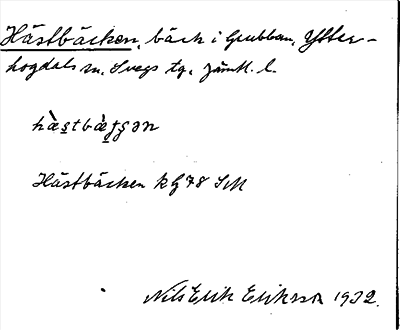 Hästbäcken, bäck i Grubban, Ytter-
hogdals sn. Svegs tg. Jämtl. l.
Hästbäcken kg 78 SM
Nils Erik Eriksson 1932.